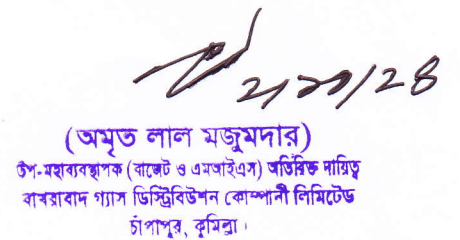 ২/১০/২৪
(অমৃত লাল মজুমদার)
উপ-মহাব্যবস্থাপক (বাজেট ও এমআইএস) অতিরিক্ত দায়িত্ব
বাখরাবাদ গ্যাস ডিস্ট্রিবিউশন কোম্পানী লিমিটেড
চাঁপাপুর, কুমিল্লা।